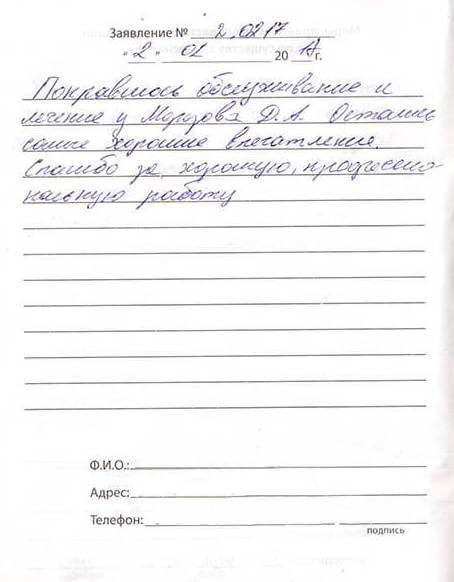 Заявление № 2.0217
"2" 02 2017г.
Понравилось обслуживание и
лечение у Морозова Д.А. Остались
самые хорошие впечатление.
Спасибо за хорошую, профессио
нальную работу
Ф.И.О.:
Адрес:
Телефон:
подпись